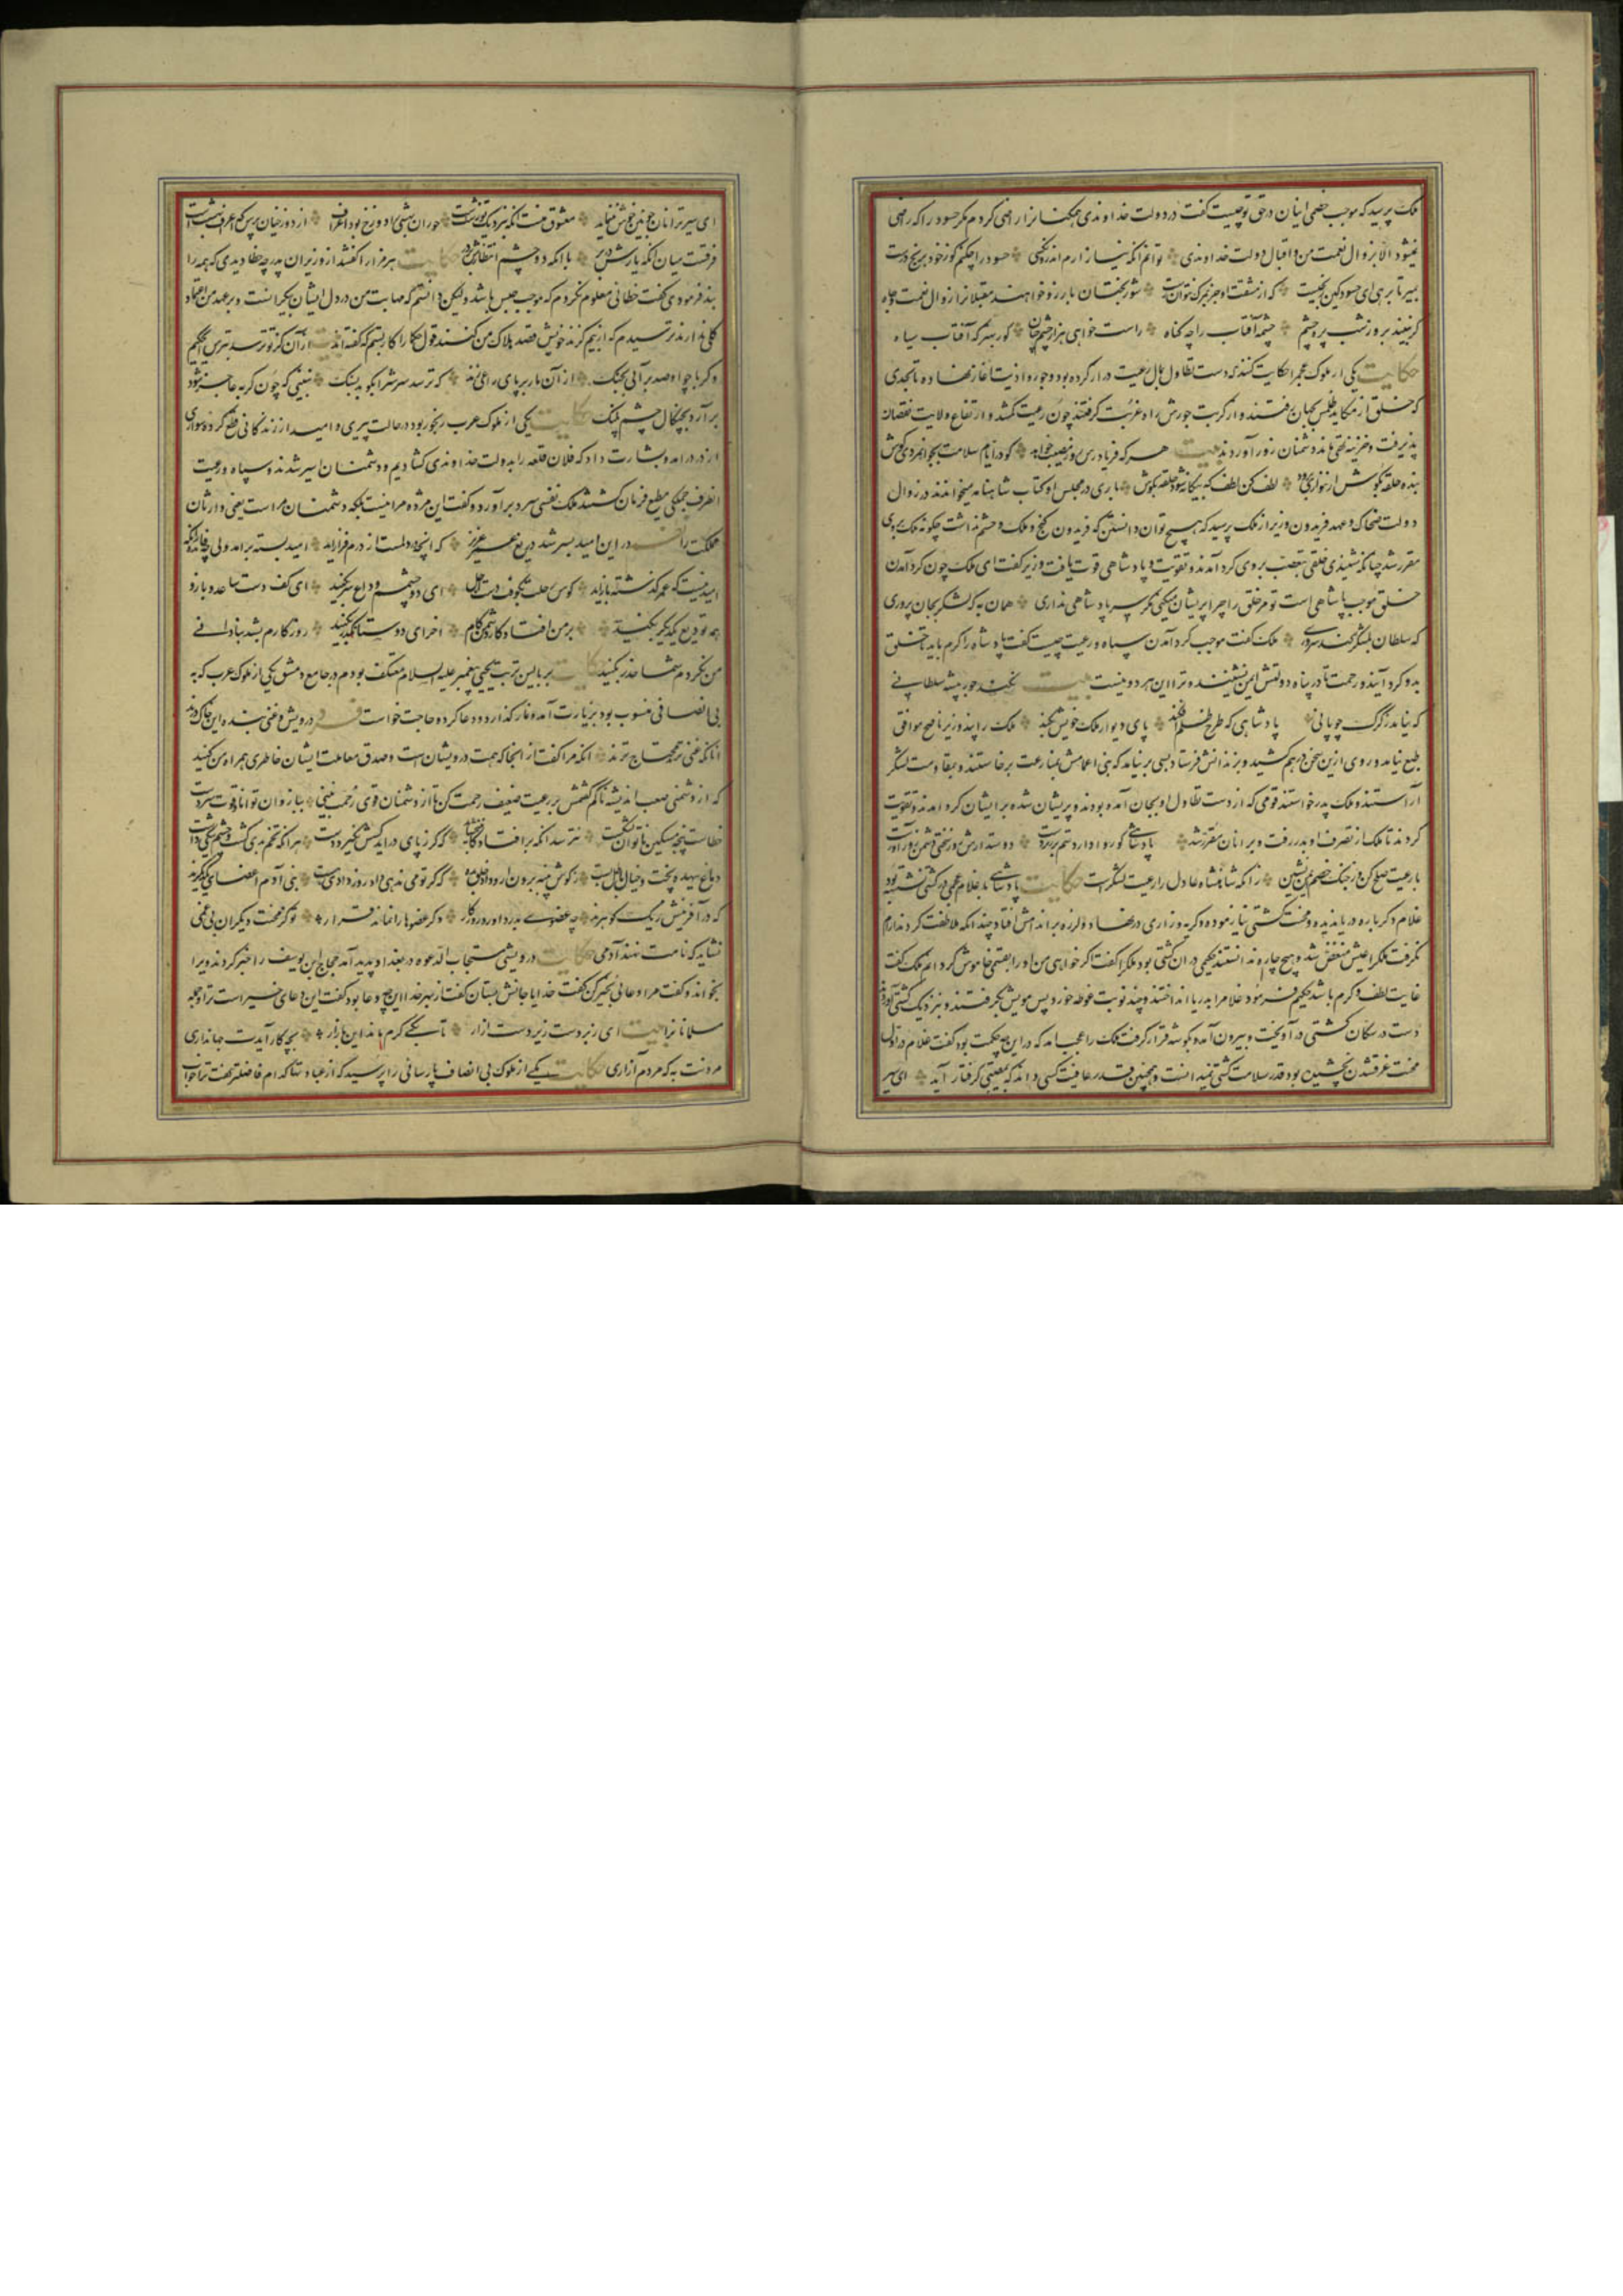 ملک پرسید که موجب خصمی اینان در حق تو چیست گفت در دولت خداوندی همکنانرا راضی کردم مگر حسود را که راضی
نمیشود الا بزوال نعمت من و اقبال دولت خداوندی توانم آنکه نیازارم اندرون کسی حسود را چکنم کو ز خود برنج درست
بمیر تا برهی ای حسود کین رنجیست که از مشقت او جز بمرک نتوان رست شوربختان بآرزو خواهند مقبلانرا زوال نعمت و جاه
گر نبیند بروز شب پره چشم چشمه آفتاب را چه گناه راست خواهی هزار چشم چنان کور بهتر که آفتاب سیاه
حکایت یکی از ملوک عجم را حکایت کنند که دست تطاول بمال رعیت دراز کرده بود و جور و اذیت آغاز نهاده تا بجدی
که خلق از مکاید ظلمش بجهان برفتند و از کربت جورش راه غربت گرفتند چون رعیت کم شد و ارتفاع ولایت نقصان
پذیرفت و خزینه تهی ماند دشمنان زور آوردند بیت هر که فریادرس روز مصیبت خواهد کو در ایام سلامت بجوانمردی کوش
بنده حلقه بگوش ار ننوازی برود لطف کن لطف که بیگانه شود حلقه بگوش باری در مجلس او کتاب شاهنامه میخواندند در زوال
دولت ضحاک و عهد فریدون وزیر از ملک پرسید که هیچ توان دانستن که فریدون گنج و ملک و حشم نداشت چگونه ملک بروی
مقرر شد چنانکه شنیدی خلقی بتعصب بروی گرد آمدند و تقویت و پادشاهی قوت یافت وزیر گفت ای ملک چون گرد آمدن
خلق موجب پادشاهی است تو مر خلق را چرا پریشان میکنی مگر سر پادشاهی نداری همان به که لشکر بجان پروری
که سلطان بلشکر کند سروری ملک گفت موجب گرد آمدن سپاه و رعیت چیست گفت پادشاه را کرم باید تا خلق
بدو گرد آیند و رحمت تا در پناه دولتش ایمن نشینند و ترا این هر دو نیست بیت نکند جور پیشه سلطانی
که نیاید ز گرگ چوپانی پادشاهی که طرح ظلم افکند پای دیوار ملک خویش بکند ملک را پند وزیر ناصح موافق
طبع نیامد و روی ازین سخن درهم کشید و بزندانش فرستاد بسی برنیامد که بنی اعمامش بمنازعت برخاستند و بمقاومت لشکر
آراستند و ملک پدر خواستند قومی که از دست تطاول او بجان آمده بودند و پریشان شده بر ایشان گرد آمدند و تقویت
کردند تا ملک از تصرف او بدر رفت و بر آنان مقرر شد پادشاهی کو روا دارد ستم بر زیردست دوستدارش روز سختی دشمن زورآورست
با رعیت صلح کن وز جنک خصم ایمن نشین زانکه شاهنشاه عادل را رعیت لشکرست حکایت پادشاهی با غلام عجمی در کشتی نشسته بود
غلام دگر باره دریا ندیده و محنت کشتی نیازموده و گریه و زاری در نهاد و لرزه بر اندامش افتاد چندانکه ملاطفت کردند آرام
نگرفت ملک را عیش منغص شد و هیچ چاره ندانستند حکیمی در آن کشتی بود ملک را گفت اگر خواهی من او را بقسمی خاموش گردانم ملک گفت
غایت لطف و کرم باشد حکیم فرمود غلام را بدریا انداختند و چند نوبت غوطه خورد پس مویش بگرفتند و بنزدیک کشتی آوردند
دست در سکان کشتی در آویخت و بیرون آمد و بگوشه قرار گرفت ملک را عجب آمد که در این چه حکمت بود گفت غلام در اول
محنت غرقشدن نچشیده بود قدر سلامت کشتی نمیدانست و همچنین قدر عافیت کسی داند که بمصیبتی گرفتار آید ای سیر
ای سیر ترا نان جوین خوش ننماید معشوق منست آنکه بنزدیک تو زشت است حوران بهشتی را دوزخ بود اعراف از دوزخیان پرس که اعراف بهشت است
فرقست میان آنکه یارش در بر با آنکه دو چشم انتظارش بر در حکایت هرمز را گفتند از وزیران پدر چه خطا دیدی که همه را
بند فرمودی گفت خطائی معلوم نکردم که موجب حبس باشد ولیکن دانستم که مهابت من در دل ایشان بیکرانست و بر عهد من اعتماد
کلی ندارند ترسیدم که از بیم گزند خویش قصد هلاک من کنند قول حکما را کار بستم که گفته اند بیت از آن کز تو ترسد بترس ای حکیم
وگر با چو او صد برآئی بجنک از آن مار بر پای راعی زند که ترسد سرش را بکوبد بسنک نبینی که چون گربه عاجز شود
برآرد بچنگال چشم پلنک حکایت یکی از ملوک عرب رنجور بود در حالت پیری و امید از زندگانی قطع کرده سواری
از در درآمد و بشارت داد که فلان قلعه را بدولت خداوندی گشادیم و دشمنان اسیر شدند و سپاه و رعیت
آنطرف جملگی مطیع فرمان گشتند ملک نفسی سرد برآورد و گفت این مژده مرا نیست بلکه دشمنان مراست یعنی وارثان
مملکت را در این امید بسر شد دریغ عمر عزیز که آنچه در دلمست از درم فراز آید امید بسته برآمد ولی چه فایده زانکه
امید نیست که عمر گذشته باز آید کوس رحلت بکوفت دست اجل ای دو چشمم وداع سر بکنید ای کف دست و ساعد و بازو
همه تودیع یکدیگر بکنید بر من افتاده کار دشمن کام آخر ای دوستان گذر بکنید روزگارم بشد بنادانی
من نکردم شما حذر بکنید حکایت بر بالین تربت یحیی پیغمبر علیه السلام معتکف بودم در جامع دمشق یکی از ملوک عرب که به
بی انصافی منسوب بود بزیارت آمد و نماز گذارد و دعا کرده حاجت خواست فرد درویش و غنی بنده این خاک درند
آنانکه غنی ترند محتاج ترند آنکه مرا گفت از آنجا که همت درویشان است و صدق معاملت ایشان خاطری همراه من کنید
که از دشمنی صعب اندیشه ناکم گفتمش بر رعیت ضعیف رحمت کن تا از دشمنان قوی زحمت نبینی ببازوان توانا و قوت سر دست
خطاست پنجه مسکین ناتوان بشکست نترسد آنکه بر افتادگان نبخشاید که گر ز پای درآید کسش نگیرد دست هر آنکه تخم بدی کشت و چشم نیکی داشت
دماغ بیهده پخت و خیال باطل بست ز گوش پنبه برون آر و داد خلق بده که گر تو می ندهی داد روز دادی هست بنی آدم اعضای یکدیگرند
که در آفرینش ز یک گوهرند چه عضوی بدرد آورد روزگار دگر عضوها را نماند قرار تو کز محنت دیگران بی غمی
نشاید که نامت نهند آدمی حکایت درویشی مستجاب الدعوه در بغداد پدید آمد حجاج ابن یوسف را خبر کردند ویرا
بخواند و گفت مرا دعائی بخیر کن گفت خدایا جانش بستان گفت از بهر خدا این چه دعا بود گفت این دعای خیر است ترا و جمله
مسلمانانرا بیت ای زبردست زیردست آزار تا بکی گرم ماند این بازار بچه کار آیدت جهانداری
مردنت به که مردم آزاری حکایت یکی از ملوک بی انصاف پارسائی را پرسید که از عبادتها کدام فاضلتر گفت ترا خواب